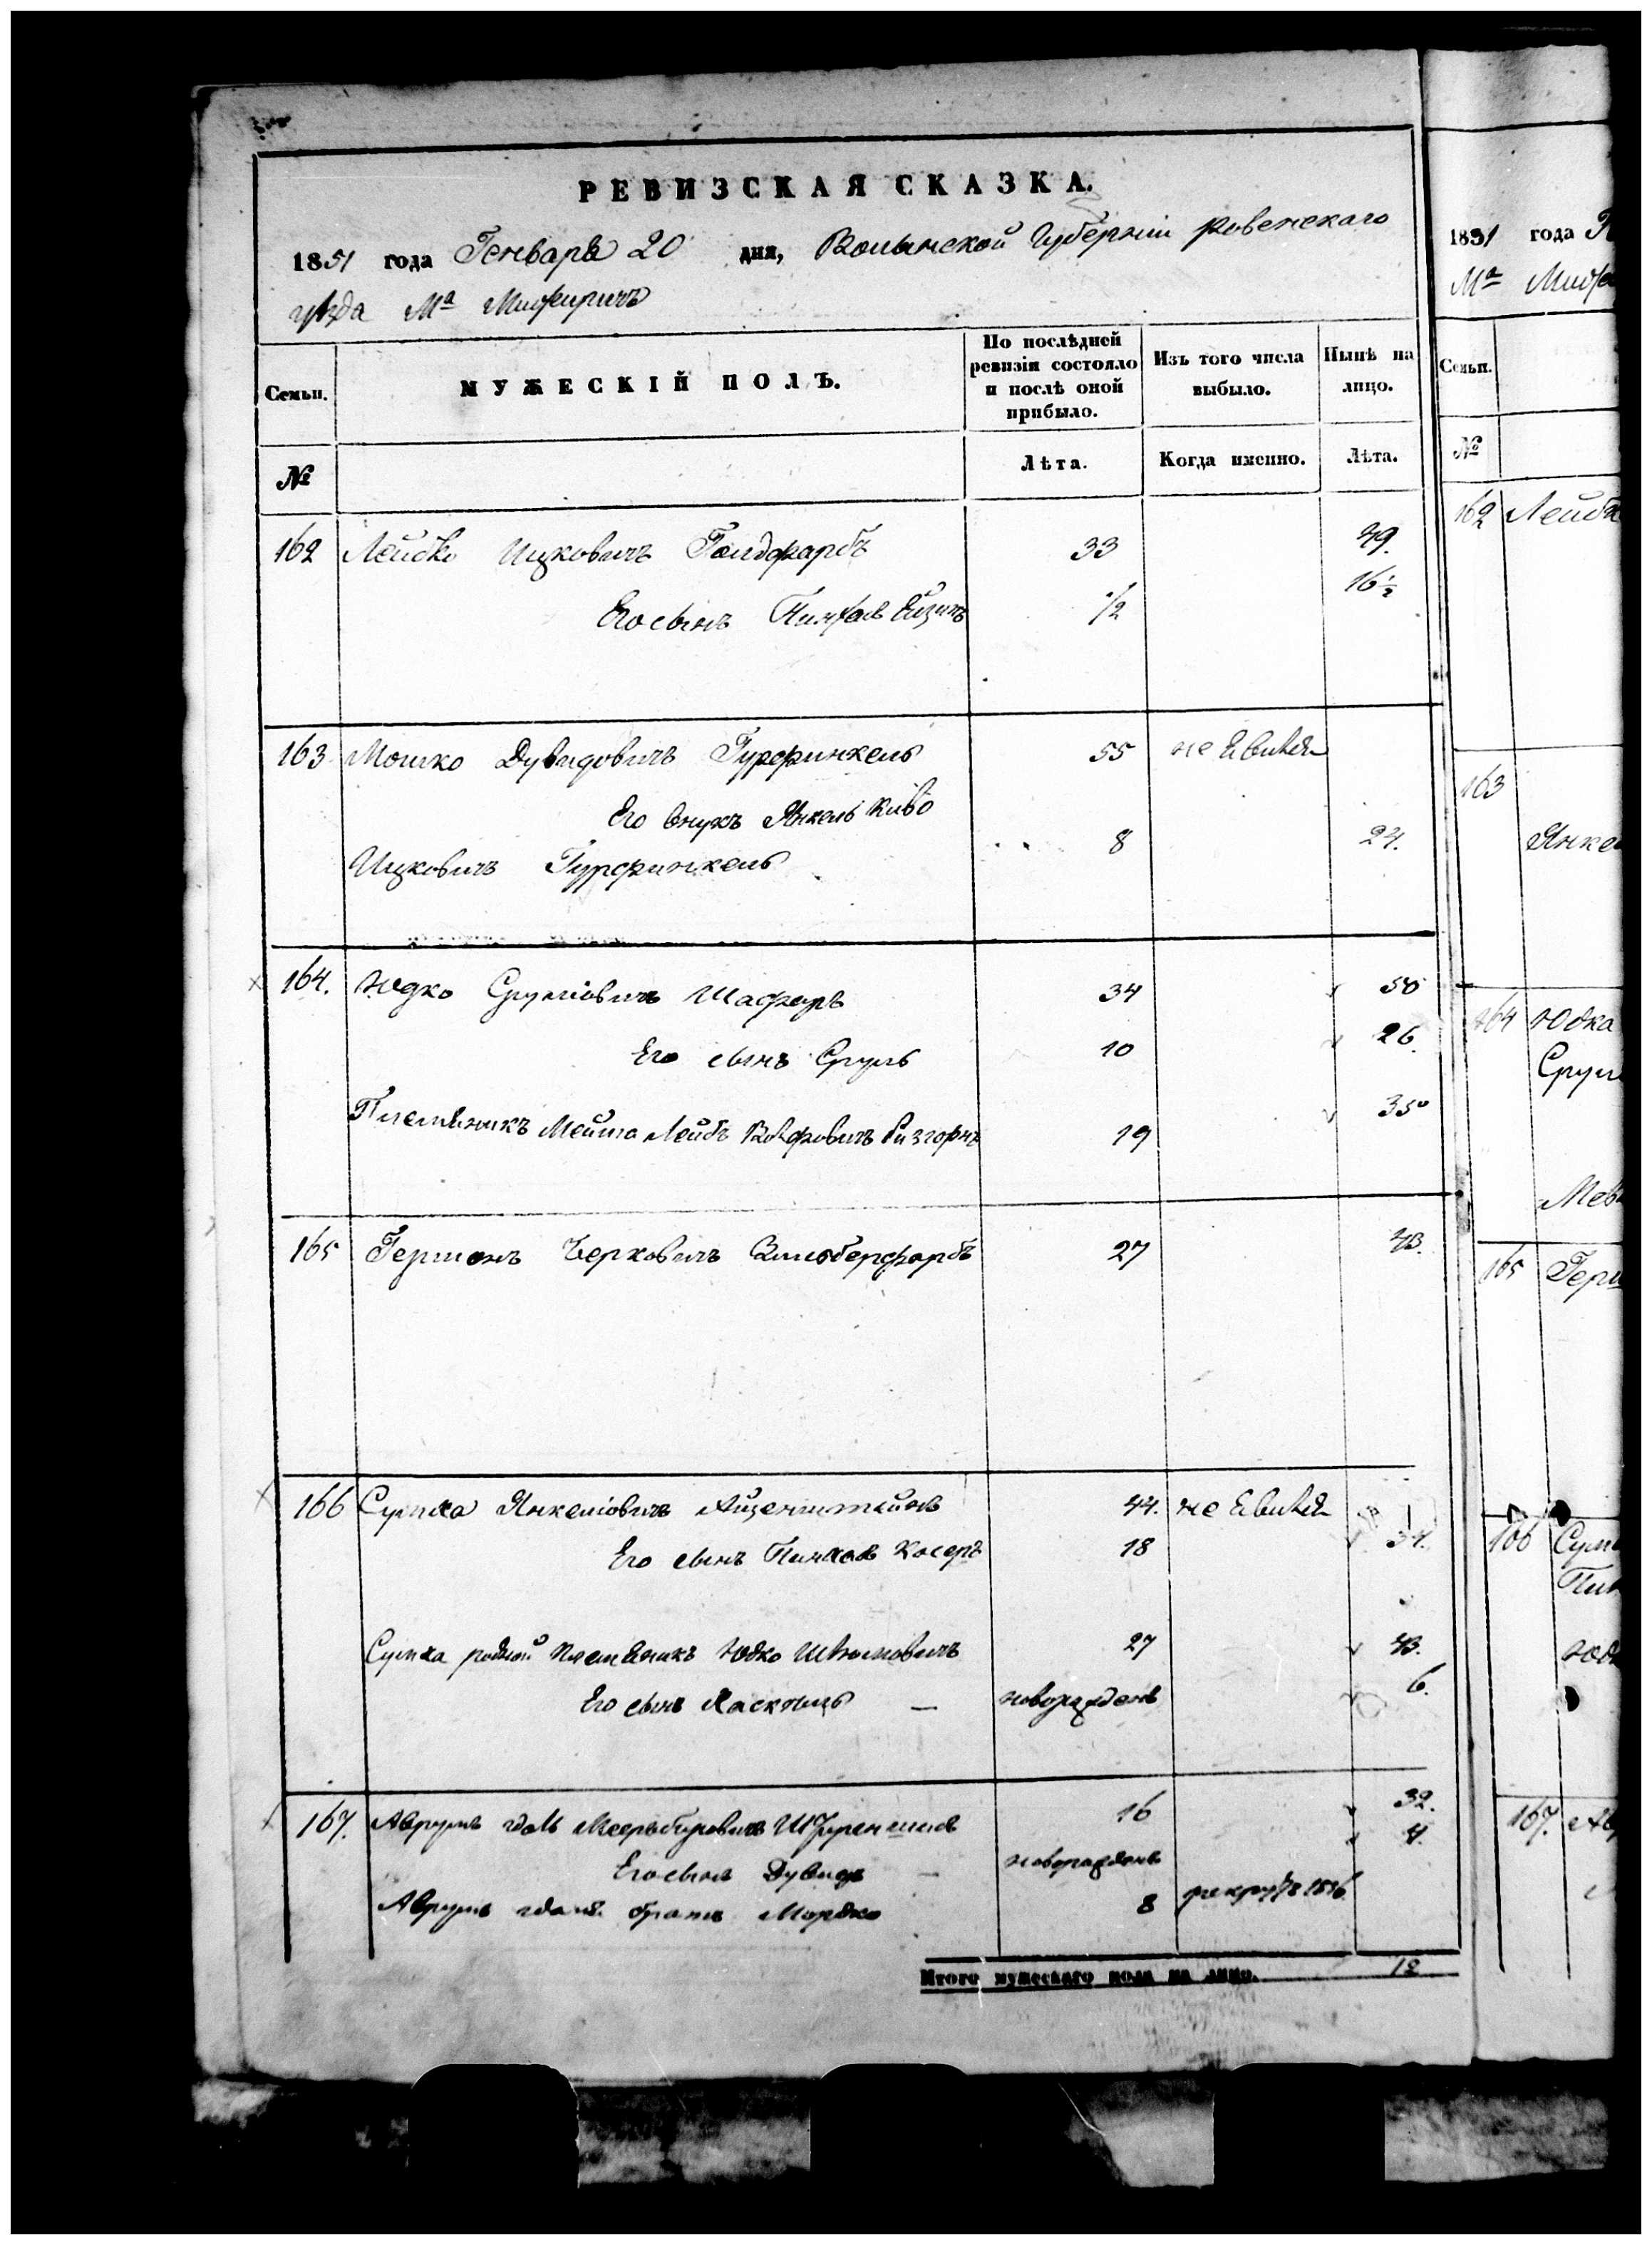 РЕВИЗСКАЯ СКАЗКА.
1851 года Генваря 20 дня, Волынской Губерніи Ровенскаго
уѣзда Мª Межиричъ
Семьи. МУЖЕСКІЙ ПОЛЪ. По послѣдней ревизіи состояло и послѣ оной прибыло. Изъ того числа выбыло. Нынѣ на лицо.
№ Лѣта. Когда именно. Лѣта.
162 Лейбко Ицковичъ Голдфарбъ 33 49.
Его сынъ Пинхас Ейзикъ 1/2 16 1/2
163 Мошко Дувидовичъ Гурфинкель 55 не явился
Его внукъ Янкель Киво
Ицковичъ Гурфинкель 8 24.
164. Юдко Сруліовичъ Шафаръ 34 50
Его сынъ Сруль 10 26.
Племяникъ Лейбъ Волфовичъ 19 35
165 Гершонъ Берковичъ Зильберфарбъ 27 43.
166 Сумха Янкеліовичъ Айзенштейнъ 44. не явился
Его сынъ Пинхас 18 34.
Сумха родной племяникъ Юдко Шлюмовичъ 27 43.
Его сынъ новорожденъ 6.
167. Аврумъ Меерберовичъ 16 32.
Его сынъ Дувидъ — новорожденъ 4.
Аврумъ братъ Мордко 8 рекрутъ
Итого мужескаго пола на лицо. 12
1851 года
Мª
Семьи.
№
162
163
164 Юдка
165
166
167.